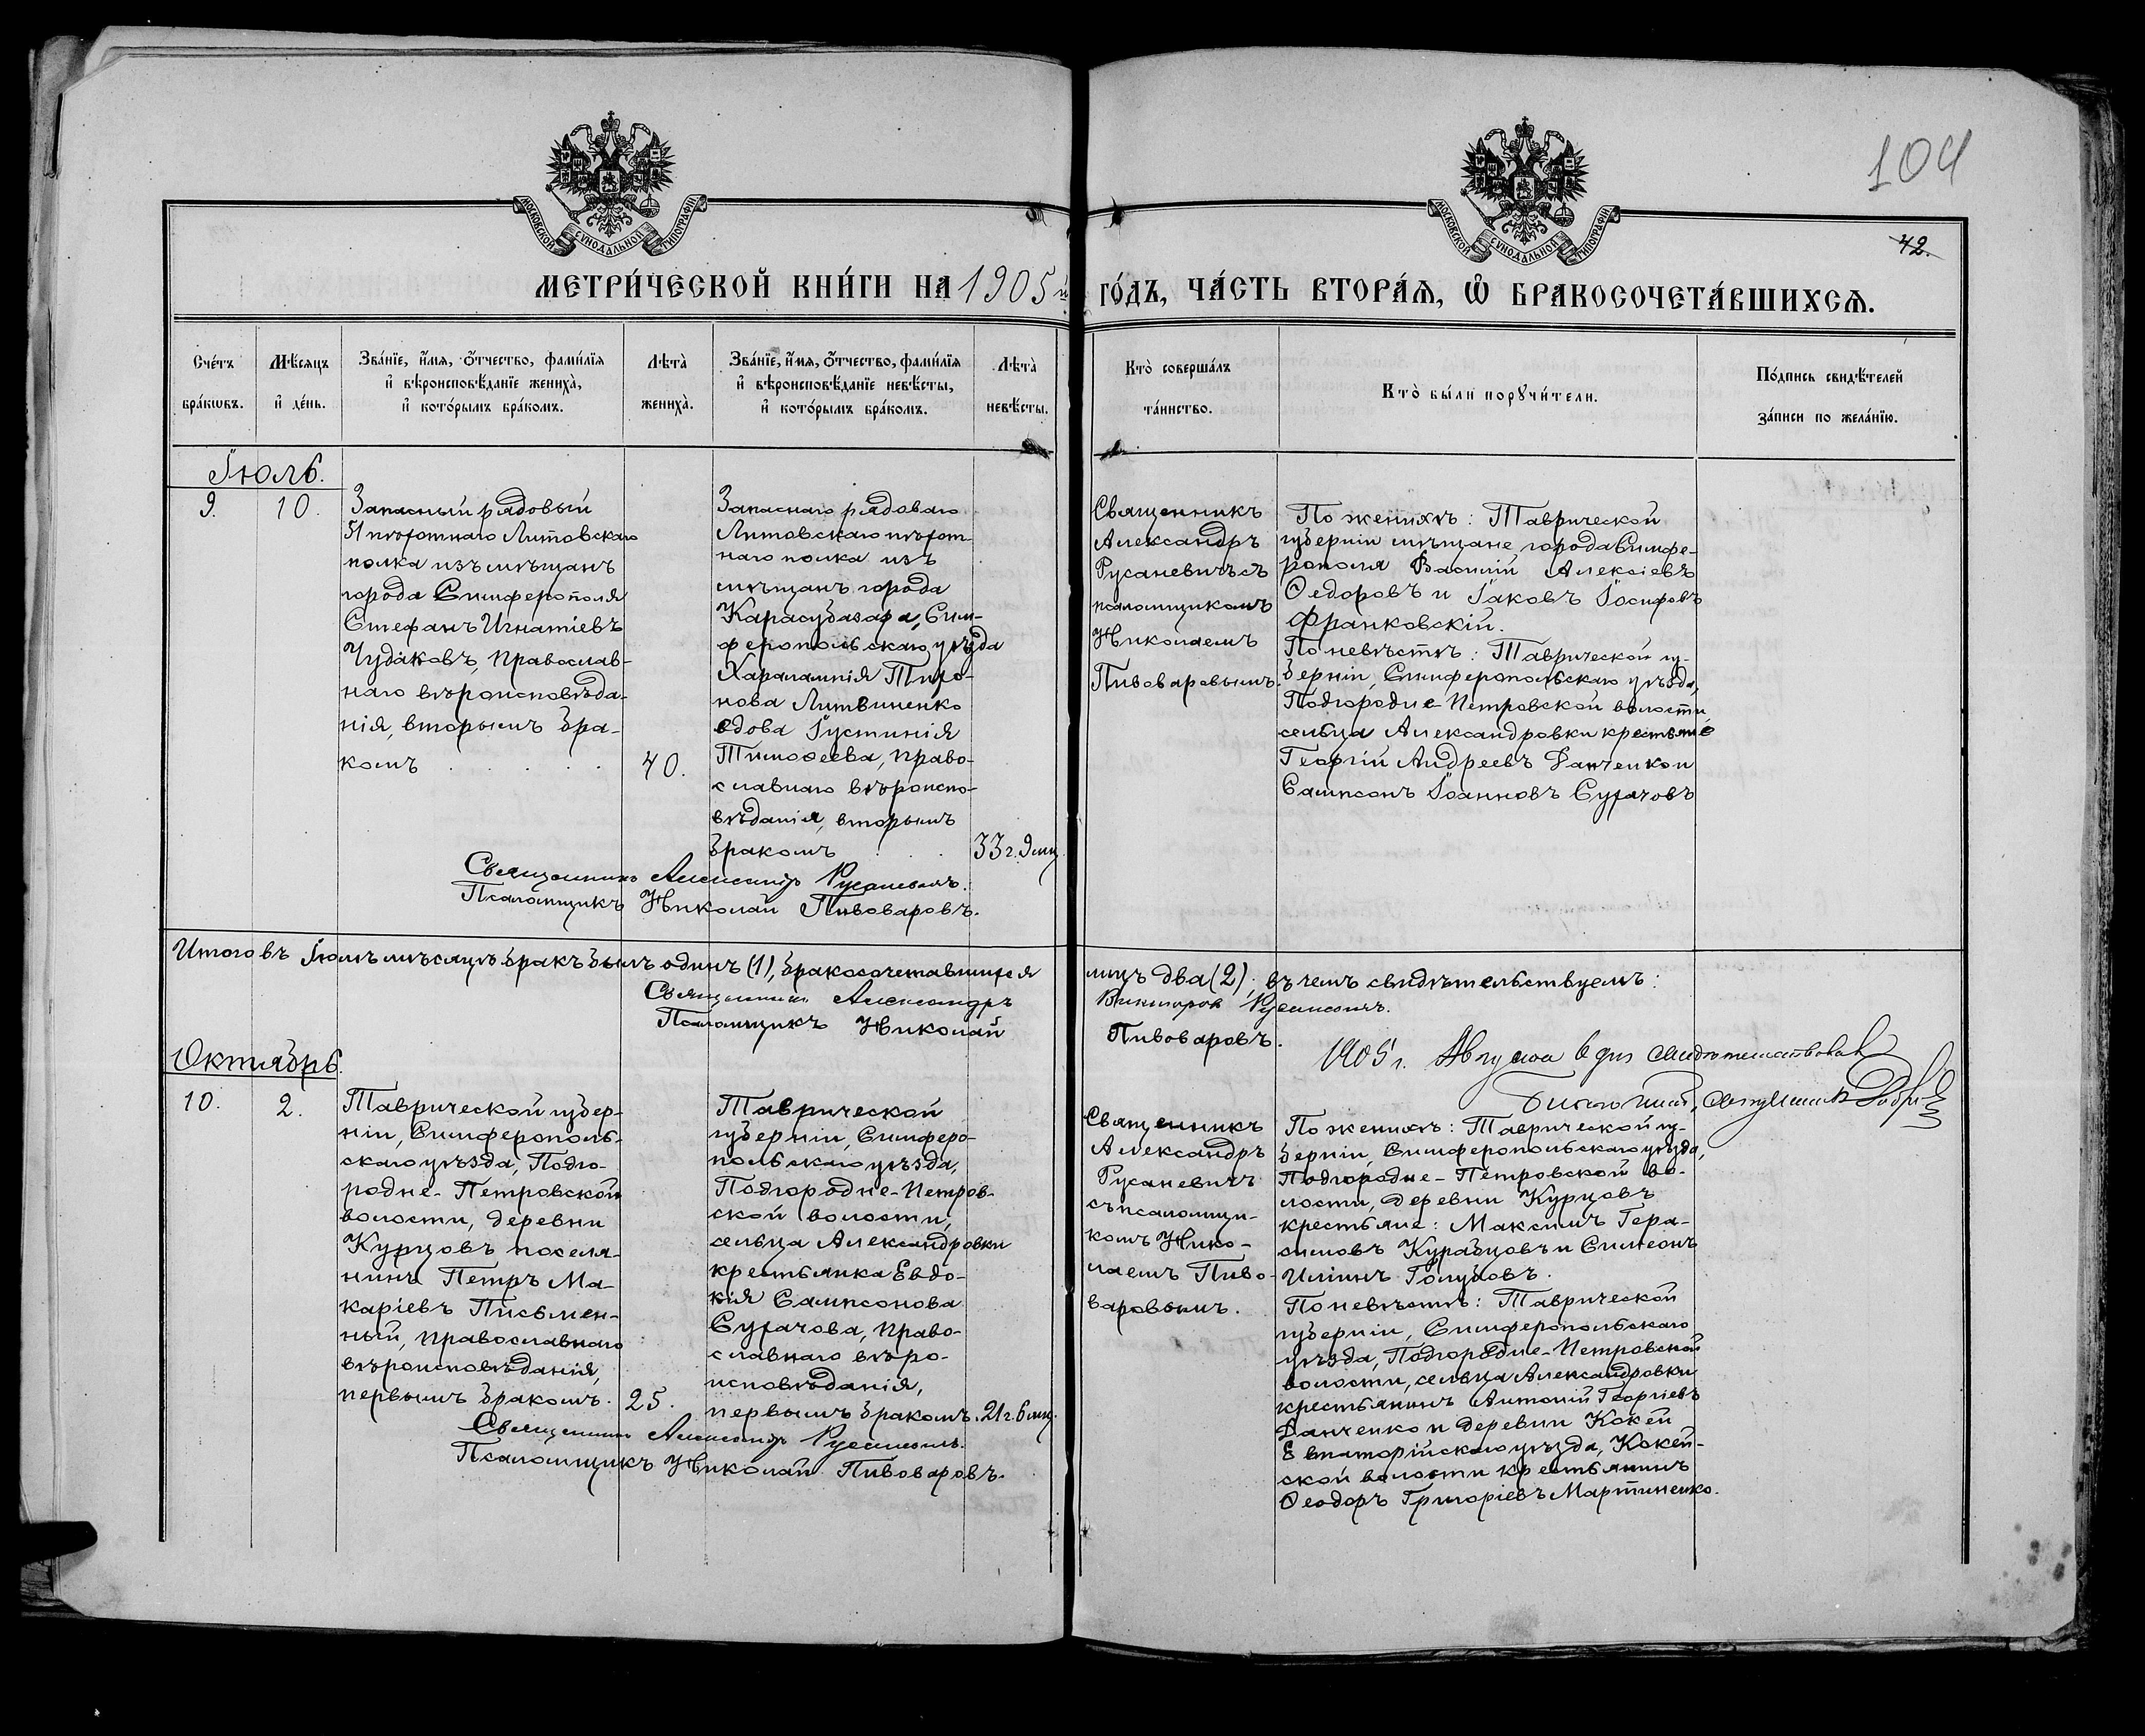 104
42.
МОСКОВСКОЙ СУНОДАЛЬНОЙ ТИПОГРАФІИ
МОСКОВСКОЙ СУНОДАЛЬНОЙ ТИПОГРАФІИ
МЕТРИ́ЧЕСКОЙ КНИ́ГИ НА 1905 й
ГО́ДЪ, ЧА́СТЬ ВТОРА́Я, Ѡ БРАКОСОЧЕТА́ВШИХСѦ.
Сче́тъ бра́кѡвъ.
Мѣ́сяцъ и де́нь.
Зва́нїе, и́мя, о́тчество, фами́лїя
и вѣроисповѣ́данїе жениха̀,
и кото́рымъ бра́комъ.
Лѣта̀ жениха̀.
Зва́нїе, и́мя, о́тчество, фами́лїя
и вѣроисповѣ́данїе невѣ́сты,
и кото́рымъ бра́комъ.
Лѣта̀ невѣ́сты.
Кто̀ соверша́лъ
та́инство.
Кто̀ бы́ли порꙋчи́тели.
По́дпись свидѣ́телей
за́писи по жела́нїю.
Іюль.
9.
10.
Запасный рядовый
51 пѣхотнаго Литовскаго
полка изъ мѣщанъ
города Симферополя
Стефанъ Игнатіевъ
Чудаковъ, православ-
наго вѣроисповѣда-
нія, вторымъ бра-
комъ . . . . .
40.
Запаснаго рядоваго
Литовскаго пѣхот-
наго полка изъ
мѣщанъ города
Карасубазара, Сим-
феропольскаго уѣзда
Харалампія Тихо-
нова Литвиненко
вдова Іустинія
Тимоѳеева, право-
славнаго вѣроиспо-
вѣданія, вторымъ
бракомъ . . .
33 г. 9 мц.
Священникъ
Александръ
Русаневичъ съ
псаломщикомъ
Николаемъ
Пивоваровымъ.
По женихѣ: Таврической
губерніи мѣщане города Симфе-
рополя Василій Алексіевъ
Ѳедоровъ и Іаковъ Іосифовъ
Франковскій.
По невѣстѣ: Таврической гу-
берніи, Симферопольскаго уѣзда,
Подгородне-Петровской волости,
сельца Александровки крестьяне
Георгій Андреевъ Данченко и
Сампсонъ Іоанновъ Сухачовъ
Священникъ Александръ Русаневичъ.
Псаломщикъ Николай Пивоваровъ.
Итого въ Іюлѣ мѣсяцѣ бракъ былъ одинъ (1), бракосочетавшихся
лицъ два (2); въ чемъ свидѣтельствуемъ:
Священникъ Александръ
Викторовъ Русаневичъ.
Псаломщикъ Николай
Пивоваровъ.
1905 г. Августа 6 дня свидетельствовалъ
Октябрь.
10.
2.
Таврической губер-
ніи, Симферополь-
скаго уѣзда, Подго-
родне-Петровской
волости, деревни
Курцовъ поселя-
нинъ Петръ Ма-
каріевъ Письмен-
ный, православнаго
вѣроисповѣданія,
первымъ бракомъ.
25.
Таврической
губерніи, Симферо-
польскаго уѣзда,
Подгородне-Петров-
ской волости,
сельца Александровки
крестьянка Евдо-
кія Сампсонова
Сухачова, право-
славнаго вѣро-
исповѣданія,
первымъ бракомъ.
21 г. 6 мц.
Священникъ
Александръ
Русаневичъ
съ псаломщи-
комъ Нико-
лаемъ Пиво-
варовымъ.
По женихѣ: Таврической гу-
берніи, Симферопольскаго уѣзда,
Подгородне-Петровской во-
лости, деревни Курцовъ
крестьяне: Максимъ Гера-
симовъ Курабцовъ и Симеонъ
Иліинъ Голубовъ.
По невѣстѣ: Таврической
губерніи, Симферопольскаго
уѣзда, Подгородне-Петровской
волости, сельца Александровки
крестьянинъ Антоній Георгіевъ
Данченко и деревни Кокей
Евпаторійскаго уѣзда, Кокей-
ской волости крестьянинъ
Ѳеодоръ Григоріевъ Мартиненко.
Священникъ Александръ Русаневичъ.
Псаломщикъ Николай Пивоваровъ.